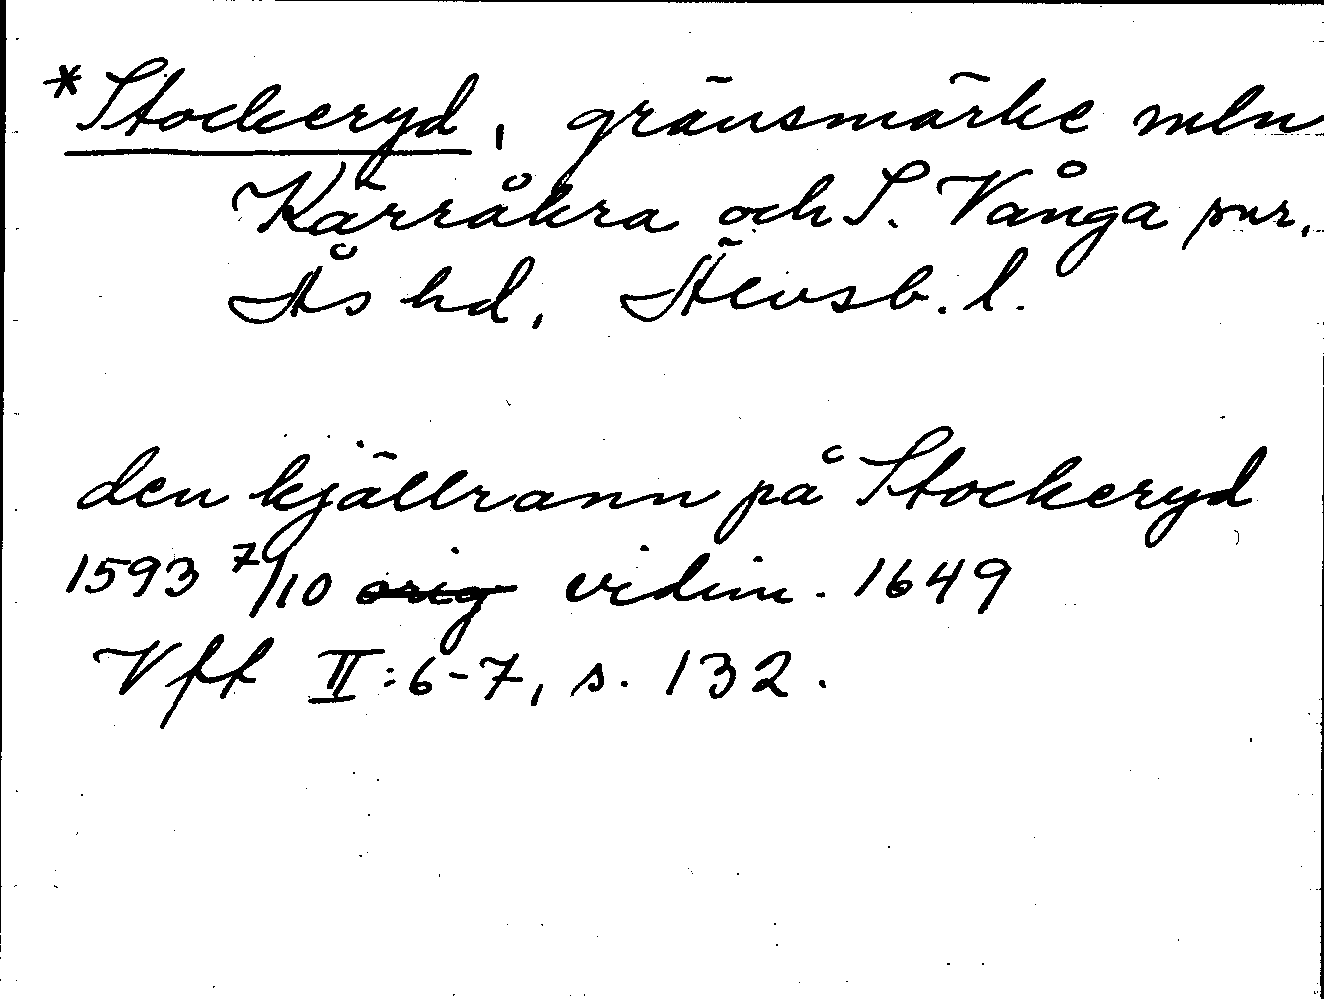 *Stockeryd, gränsmärke mln
Kärråkra och S. Vånga snr.
Ås hd, Älvsb. l.
den kjällrann på Stockeryd
1593 7/10 orig vidim. 1649
Vff II:6-7, s. 132.